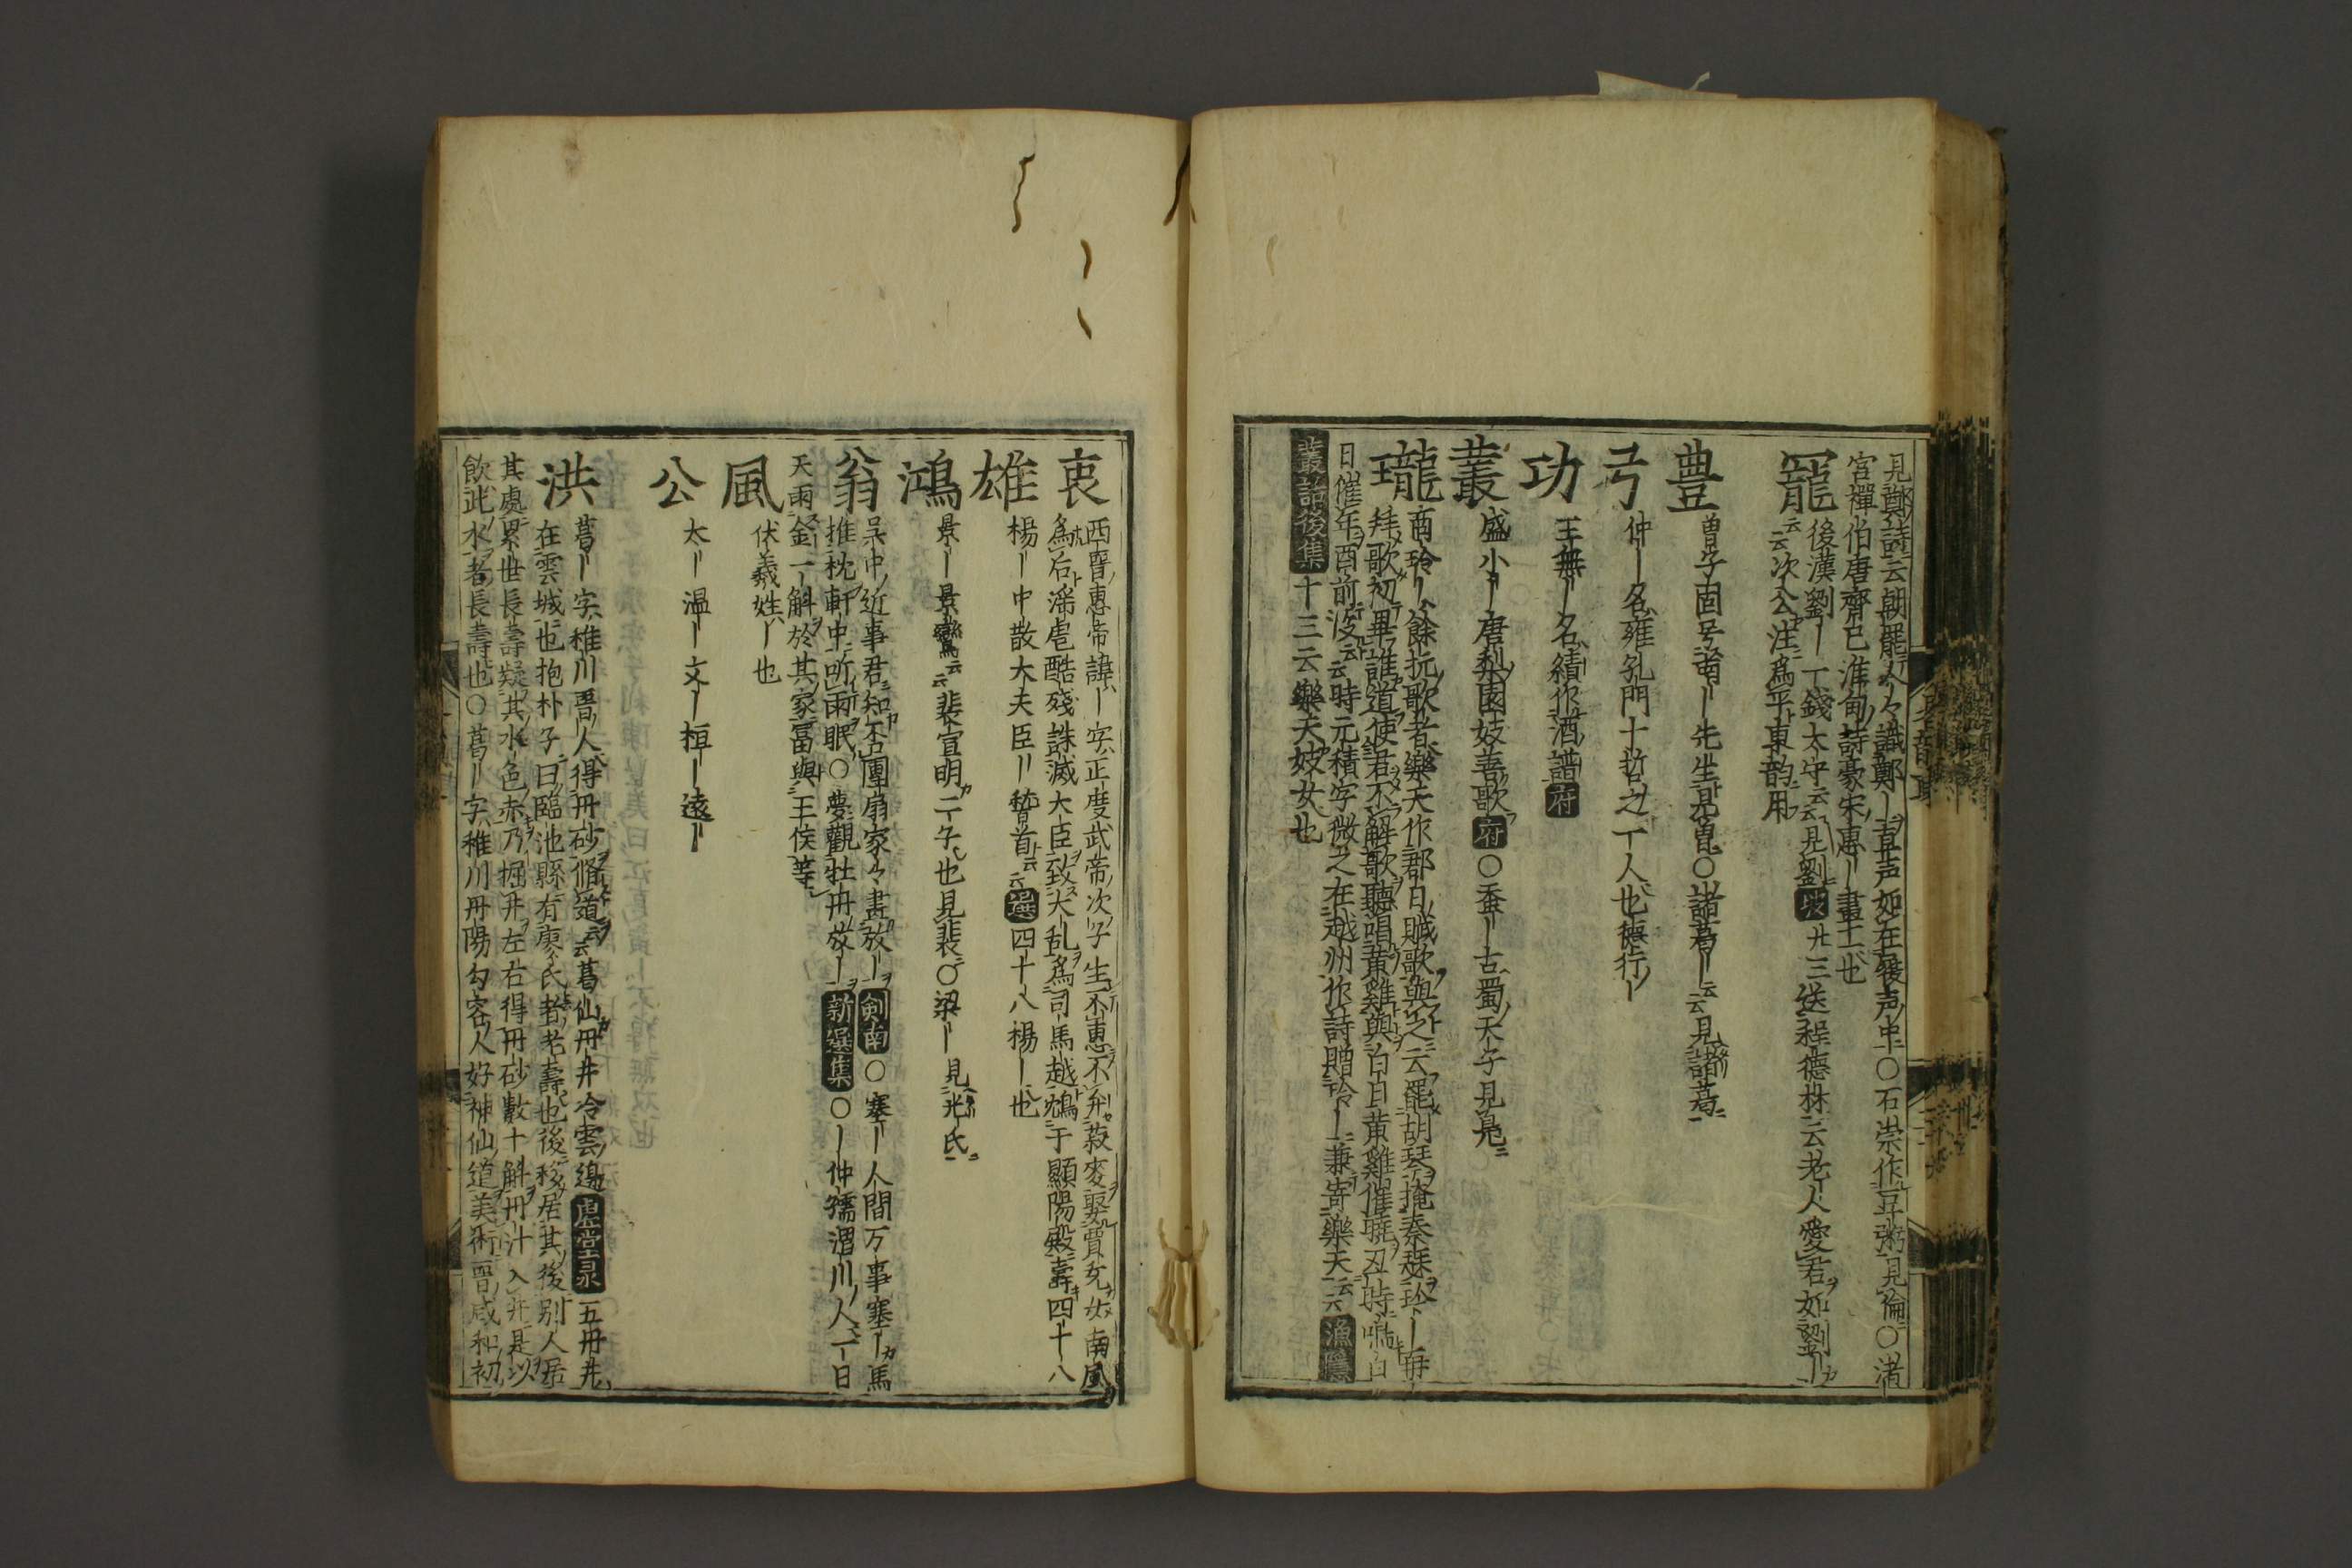 見鄭詩云朝罷人々識鄭｜直声如在履声中○石崇作豆粥見倫○渚｜
宮禪伯唐齊已淮甸詩豪宋惠｜畫工也
寵 後漢劉｜一錢太守云云見劉坡廿三送程德林云老人愛君如劉｜
云云次公注為平東韵用
豊 曽子固号南｜先生見曽○諸葛｜云云見諸葛
弓 仲｜名雍孔門十哲之一人也德行｜
功 王無｜名績作酒譜府
叢 盛小｜唐梨園妓善歌府○蚕｜古蜀天子見鳧
瓏 商玲｜餘抗歌者樂天作郡日賦歌與之云罷胡琴掩秦瑟玲｜再
拜歌初畢誰道使君不解歌聽唱黄雞與白日黄雞催曉丑時鳴白
日催年酉前没云云時元積字微之在越州作詩贈玲｜兼寄樂天云云漁隱
叢話後集十三云樂天妓女也
衷 西晋惠帝諱｜字正度武帝次子生不惠不弁菽麥娶賈充女南風
為后滛虐酷残誅滅大臣致大乱為司馬越鴆于顯陽殿壽四十八
雄 楊｜中散大夫臣｜稽首云云選四十八楊｜也
鴻 景｜景鸞云云裴宣明二子也見裴○梁｜見光氏
翁 呉中近事君知否團扇家々畫放｜剣南○塞｜人間万事塞｜馬
推枕軒中听雨眠○夢觀牡丹放｜新選集○｜仲孺渭川人一日
天雨金一斛於其家冨與王侯等
風 伏羲姓｜也
公 太｜温｜文｜桓｜遠｜
洪 葛｜字稚川晋人得丹砂脩道云云葛仙丹井冷雲邉虚堂录五丹井
在雲城也抱朴子曰臨池縣有廖氏者老壽也後移居其後别人居
其處累世長壽疑其水色赤乃掘井左右得丹砂數十斛丹汁入井是以
飲此水者長壽也○葛｜字稚川丹陽勾容人好神仙道美術晋咸和初